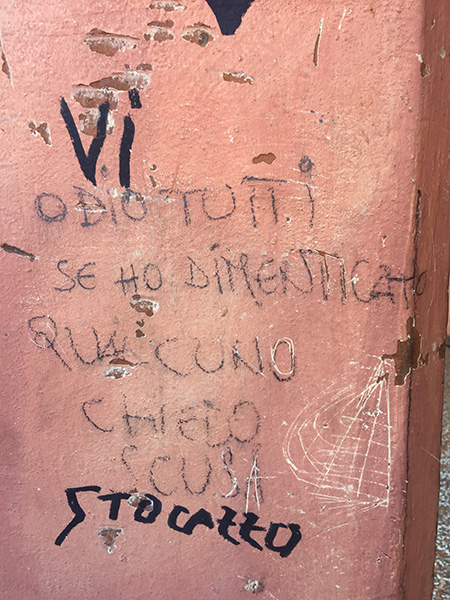 Vi
ODIO TUTTi
SE HO DiMENTICATO
QUALCUNO
CHIEDO
SCUSA
STOCAZZO